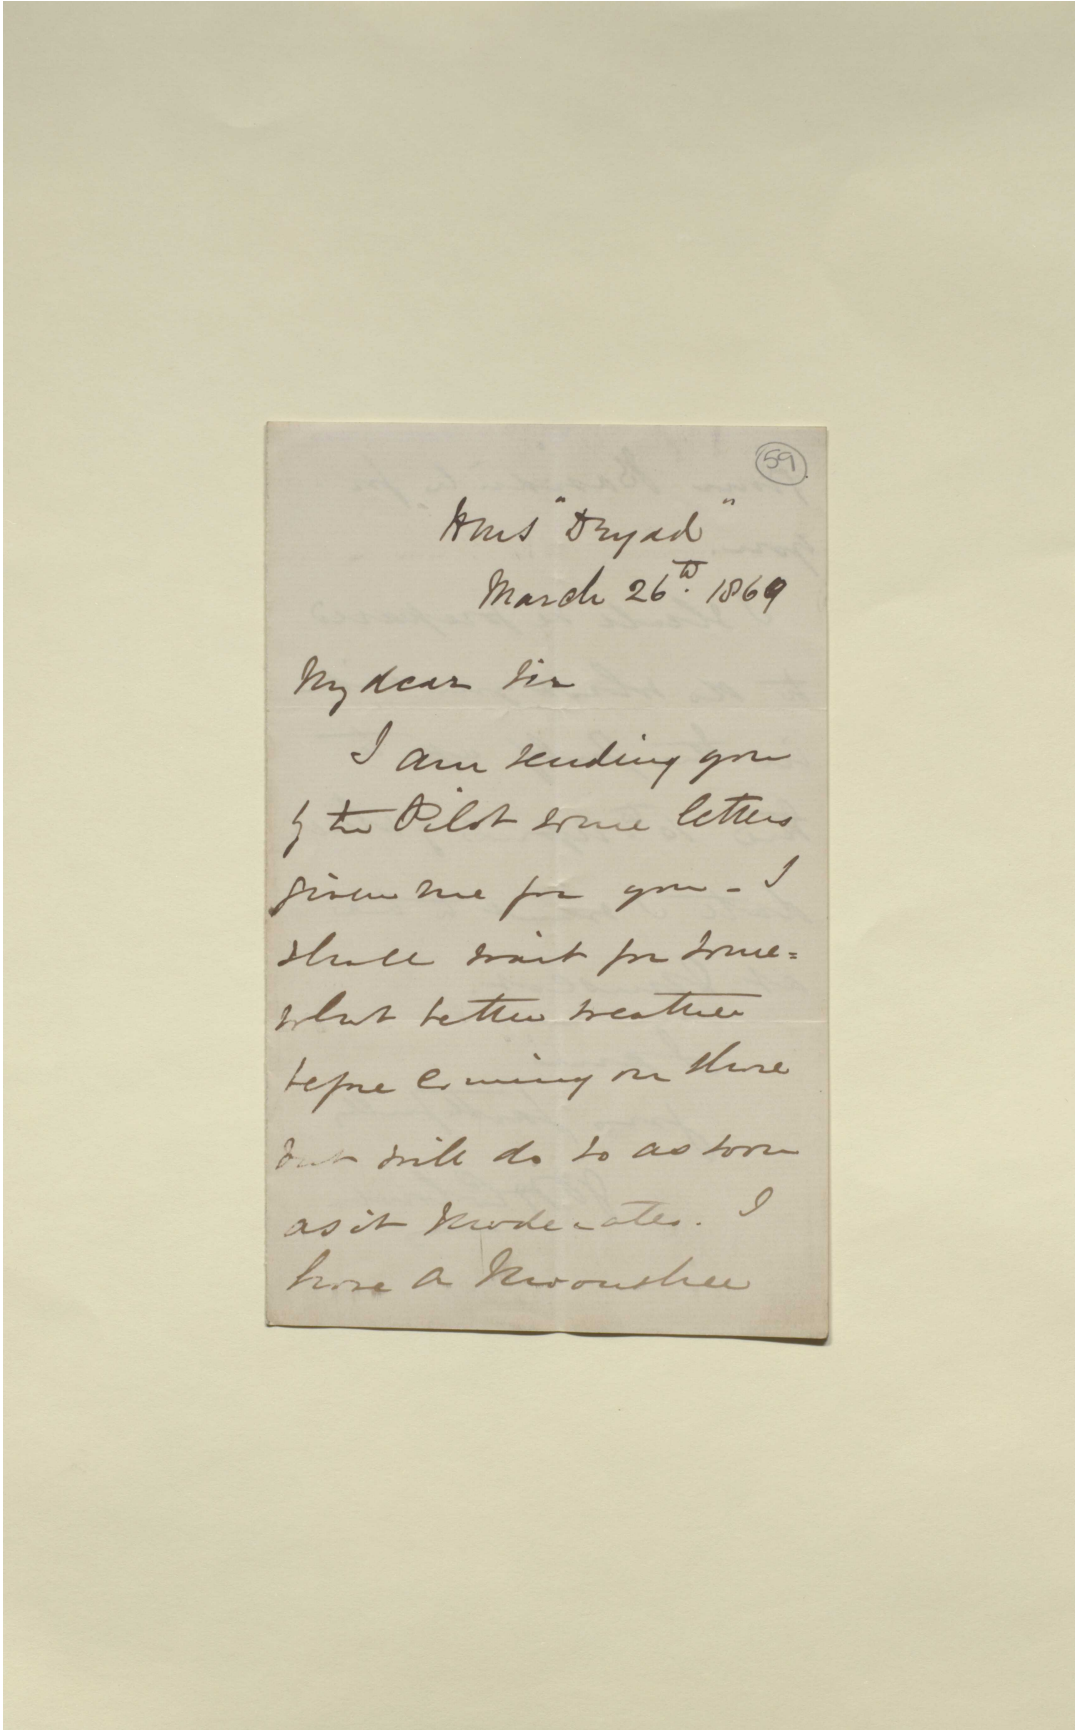 59
HMS "Dryad"
March 26th. 1869
My dear Sir
I am sending you
by the Pilot some letters
given me for you - I
shall wait for some=
what better weather
before coming on shore
but will do so as soon
as it moderates. I
have a Moonshee